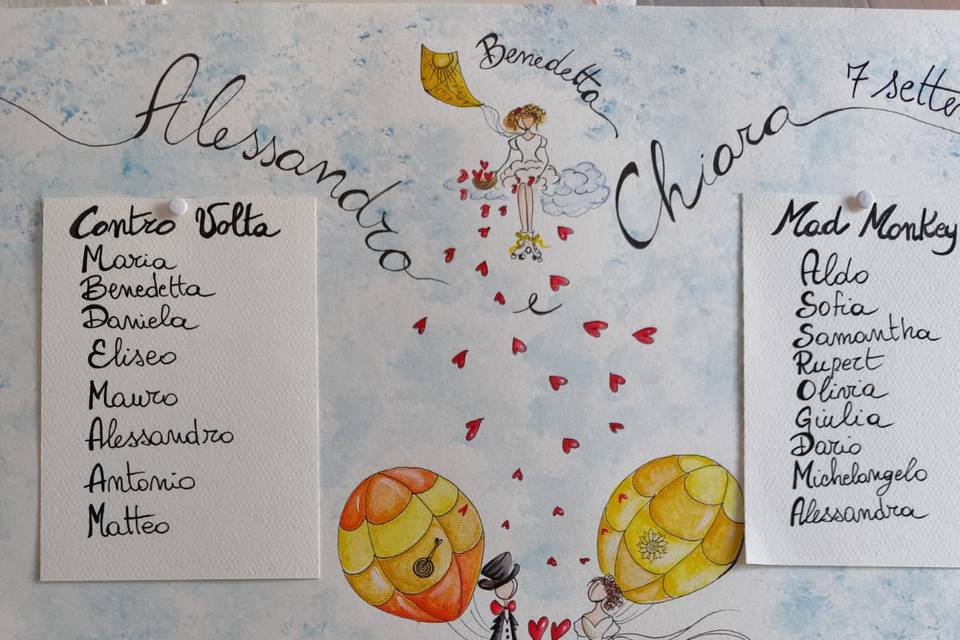 Alessandro
e
Chiara
Benedetta
Contro Volta
Maria
Benedetta
Daniela
Eliseo
Mauro
Alessandro
Antonio
Matteo
Mad Monkey
Aldo
Sofia
Samantha
Rupert
Olivia
Giulia
Dario
Michelangelo
Alessandra